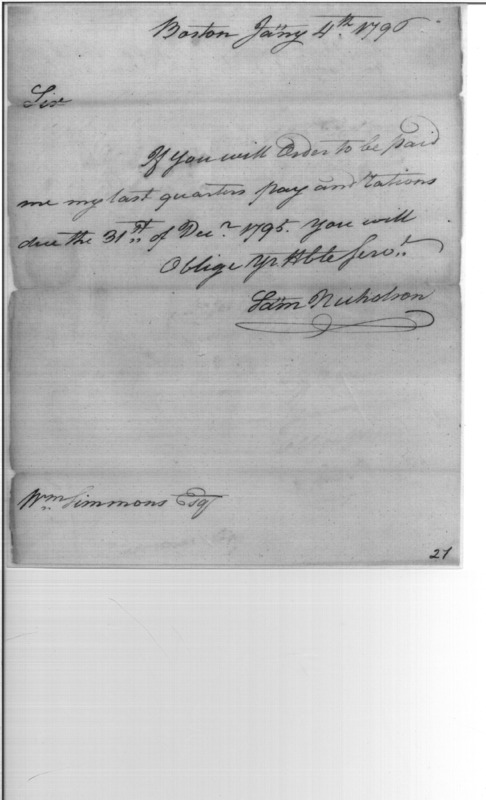 Boston Jany 4th 1796
Sir
If You will Order to be paid
me my last quarters pay and rations
due the 31st of Decr 1795. You will
Oblige Yr Hble Servt
Sam Nicholson
Wm Simmons Esq
21